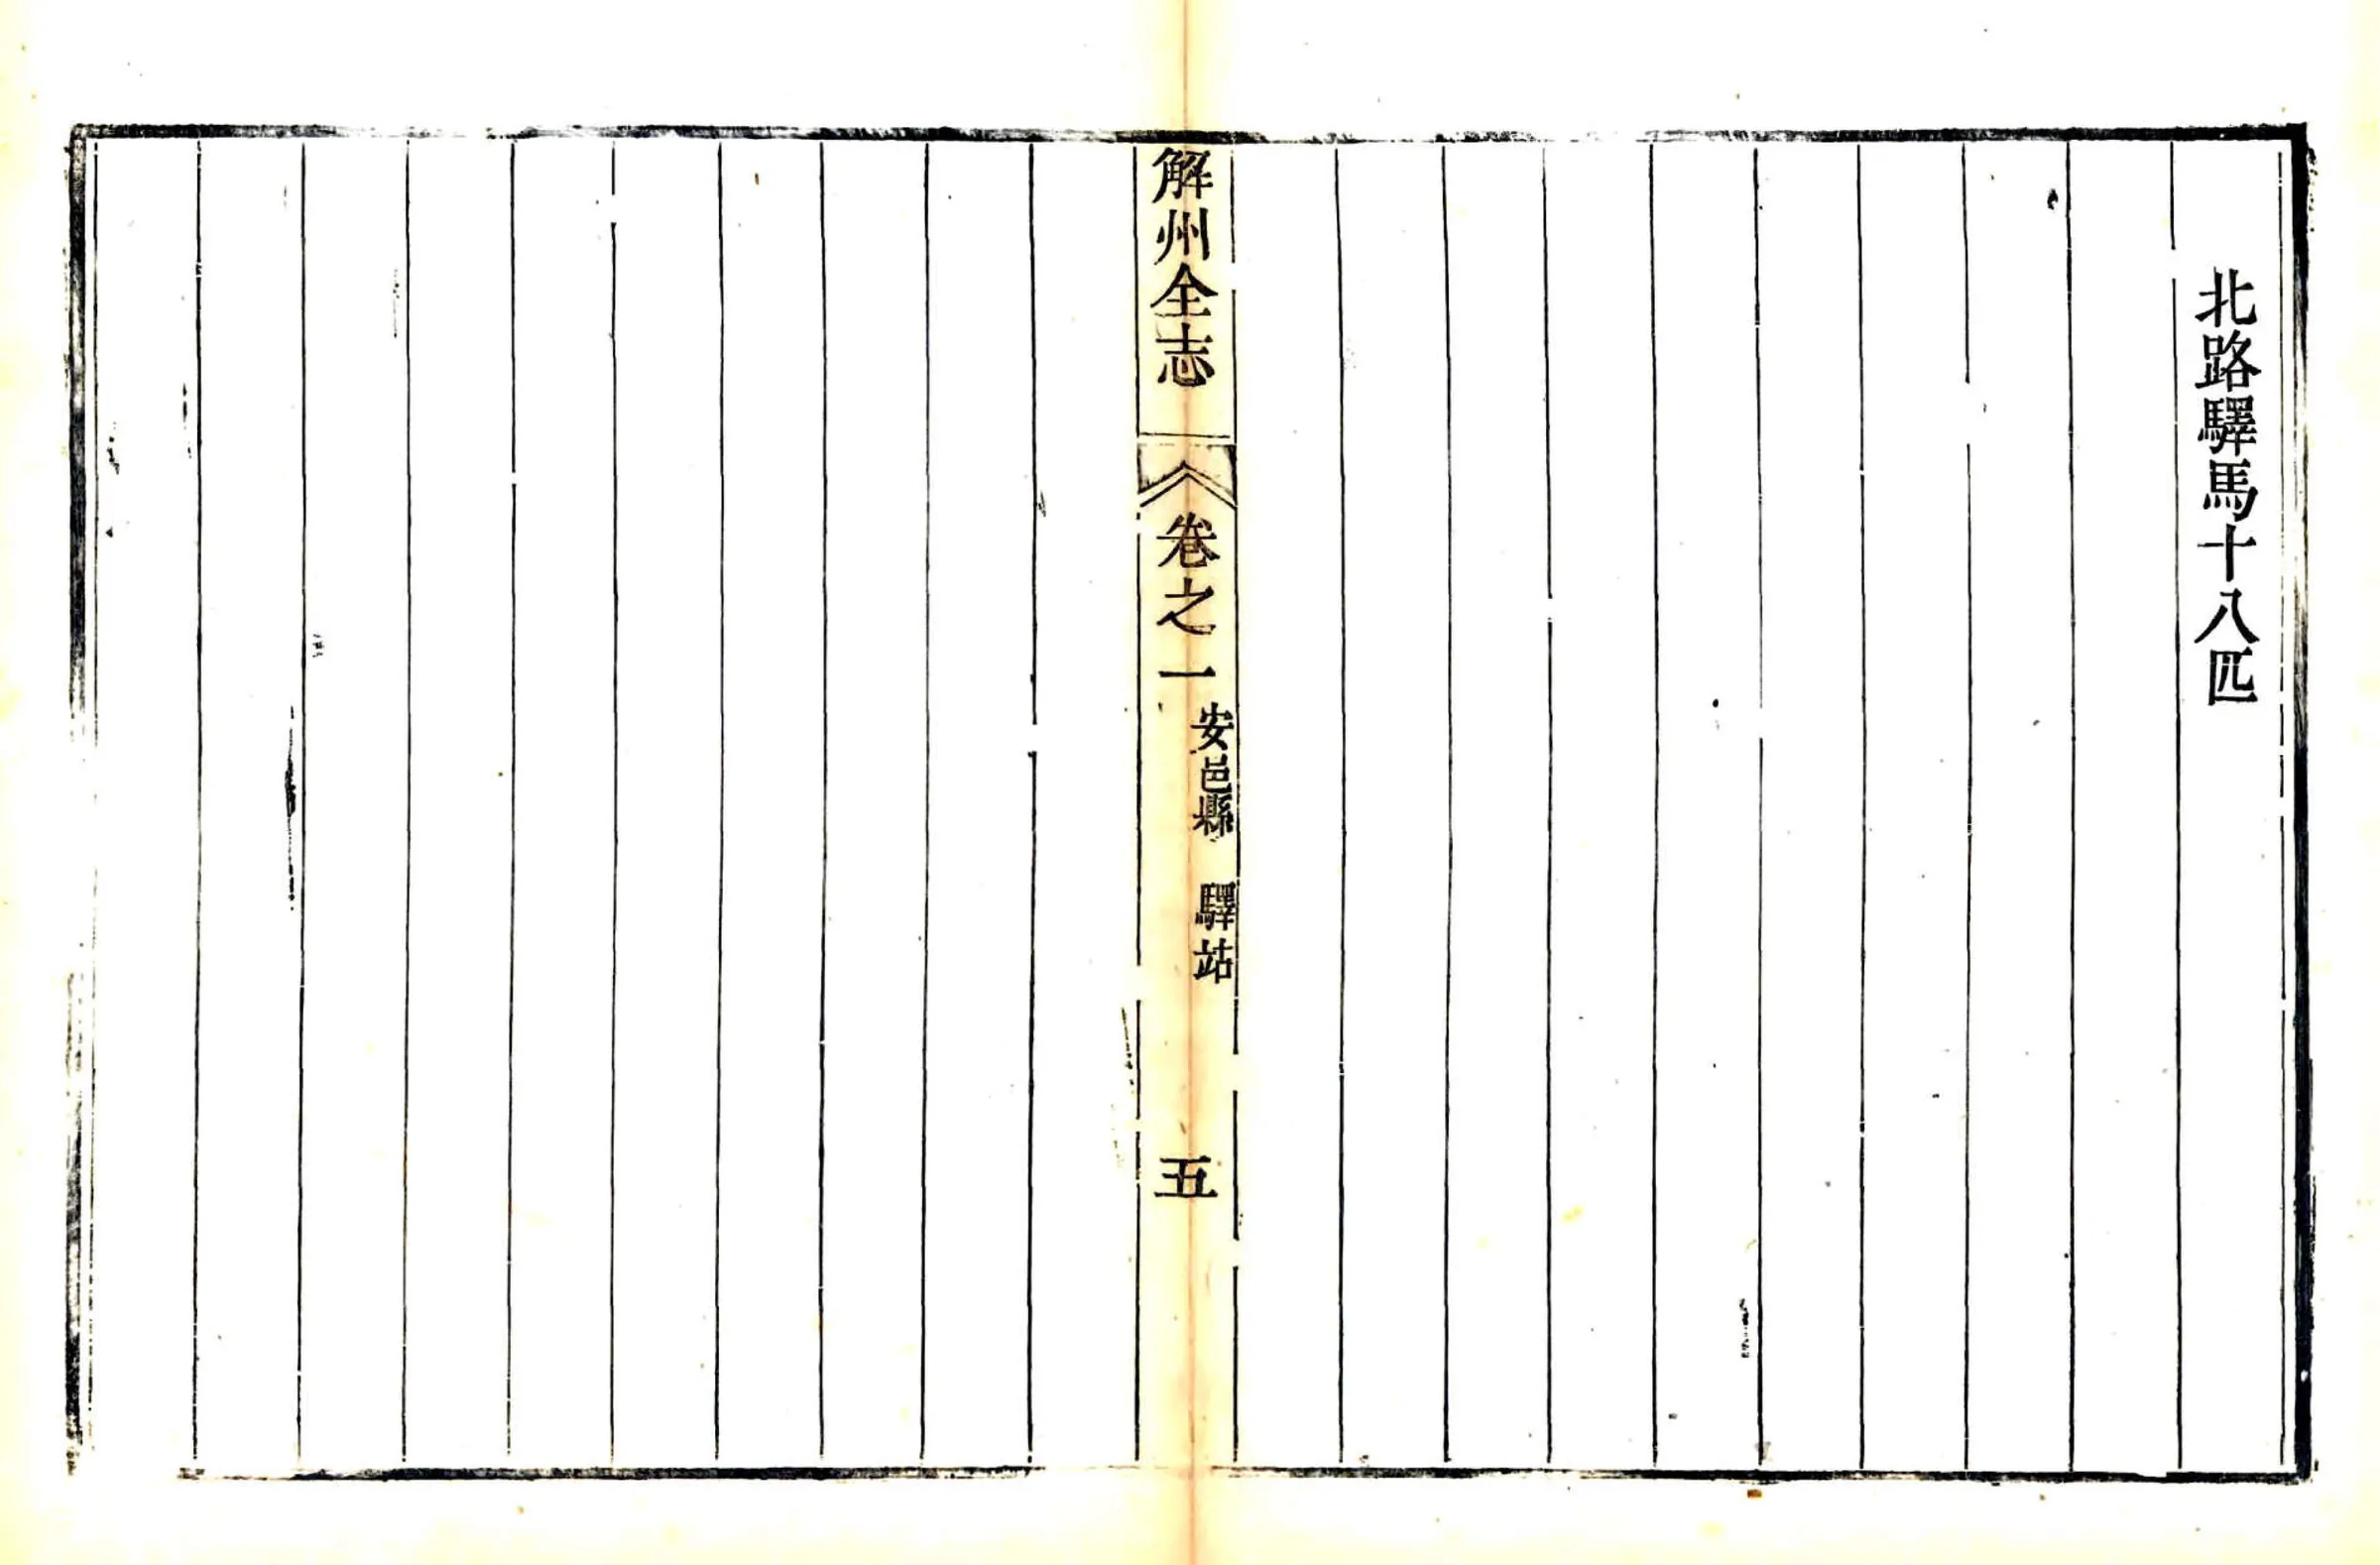 北路驛馬十八匹
解州全志
卷之一
安邑縣 驛站
五